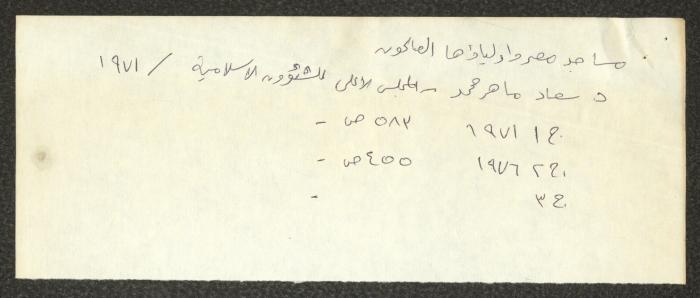 مساجد مصر وأولياؤها الصالحون
د سعاد ماهر محمد - المجلس الأعلى للشئوون الاسلامية / ١٩٧١
ج ١ ١٩٧١ ٥٨٣ ص -
ج ٢ ١٩٧٦ ٤٥٥ ص -
ج ٣ -